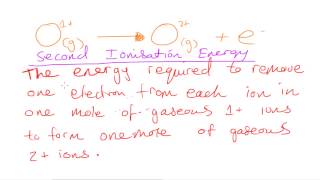 O¹⁺(g) → O²⁺(g) + e⁻
Second Ionisation Energy
The energy required to remove
one electron from each ion in
one mole of gaseous 1+ ions
to form one mole of gaseous
2+ ions.